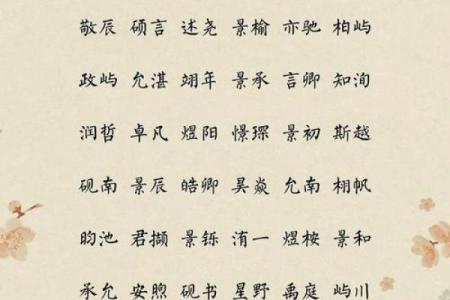 敬辰 硕言 述尧 景榆 亦驰 柏屿
政屿 允湛 翊年 景承 言卿 知洵
润哲 卓凡 煜阳 憬琛 景初 斯越
砚南 景辰 皓卿 昊焱 允南 栩帆
昀池 君撷 景铄 洧一 煜桉 景和
承允 安煦 砚书 星野 禹庭 屿川